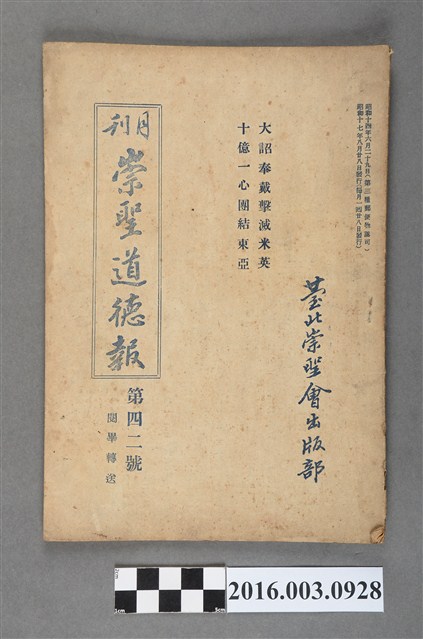 昭和十四年六月二十九日(第三種郵便物認可)
昭和十七年八月廿八日發行(每月一回廿八日發行)
大詔奉戴擊滅米英
十億一心團結東亞
臺北崇聖會出版部
月刊
崇聖道德報
第四二號
閱畢轉送
1cm
5cm
2016.003.0928